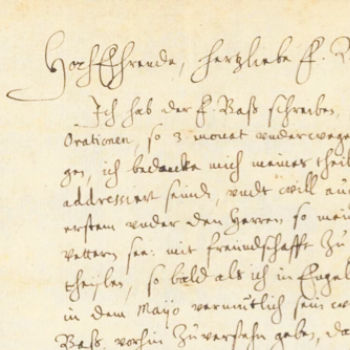 HochEhrende, hertzliebe F.
Ich hab der F. Baß schreiben,
Orationen, so 3 monat underwege
gen, ich bedancke mich meines theil
addressiert seind, undt will au
erstem under den Herren so mei
vettern see: mit freundschafft zu
theilen, so bald als ich in Engel
in dem Mayo vermutlich sein w
Baß. vorhin zu versehn geben, da